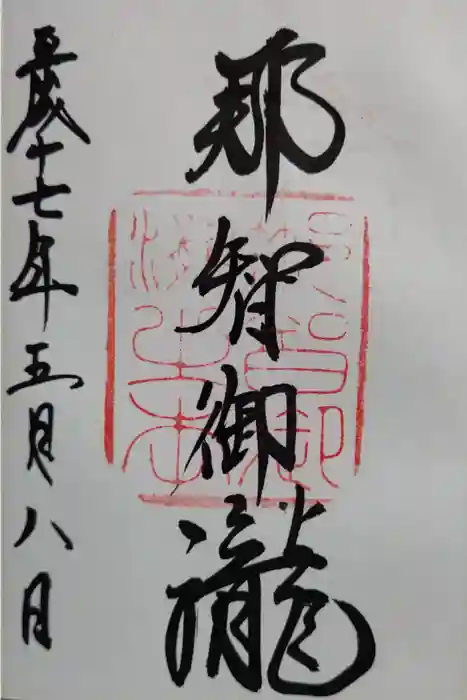 那智御瀧
平成十七年五月八日